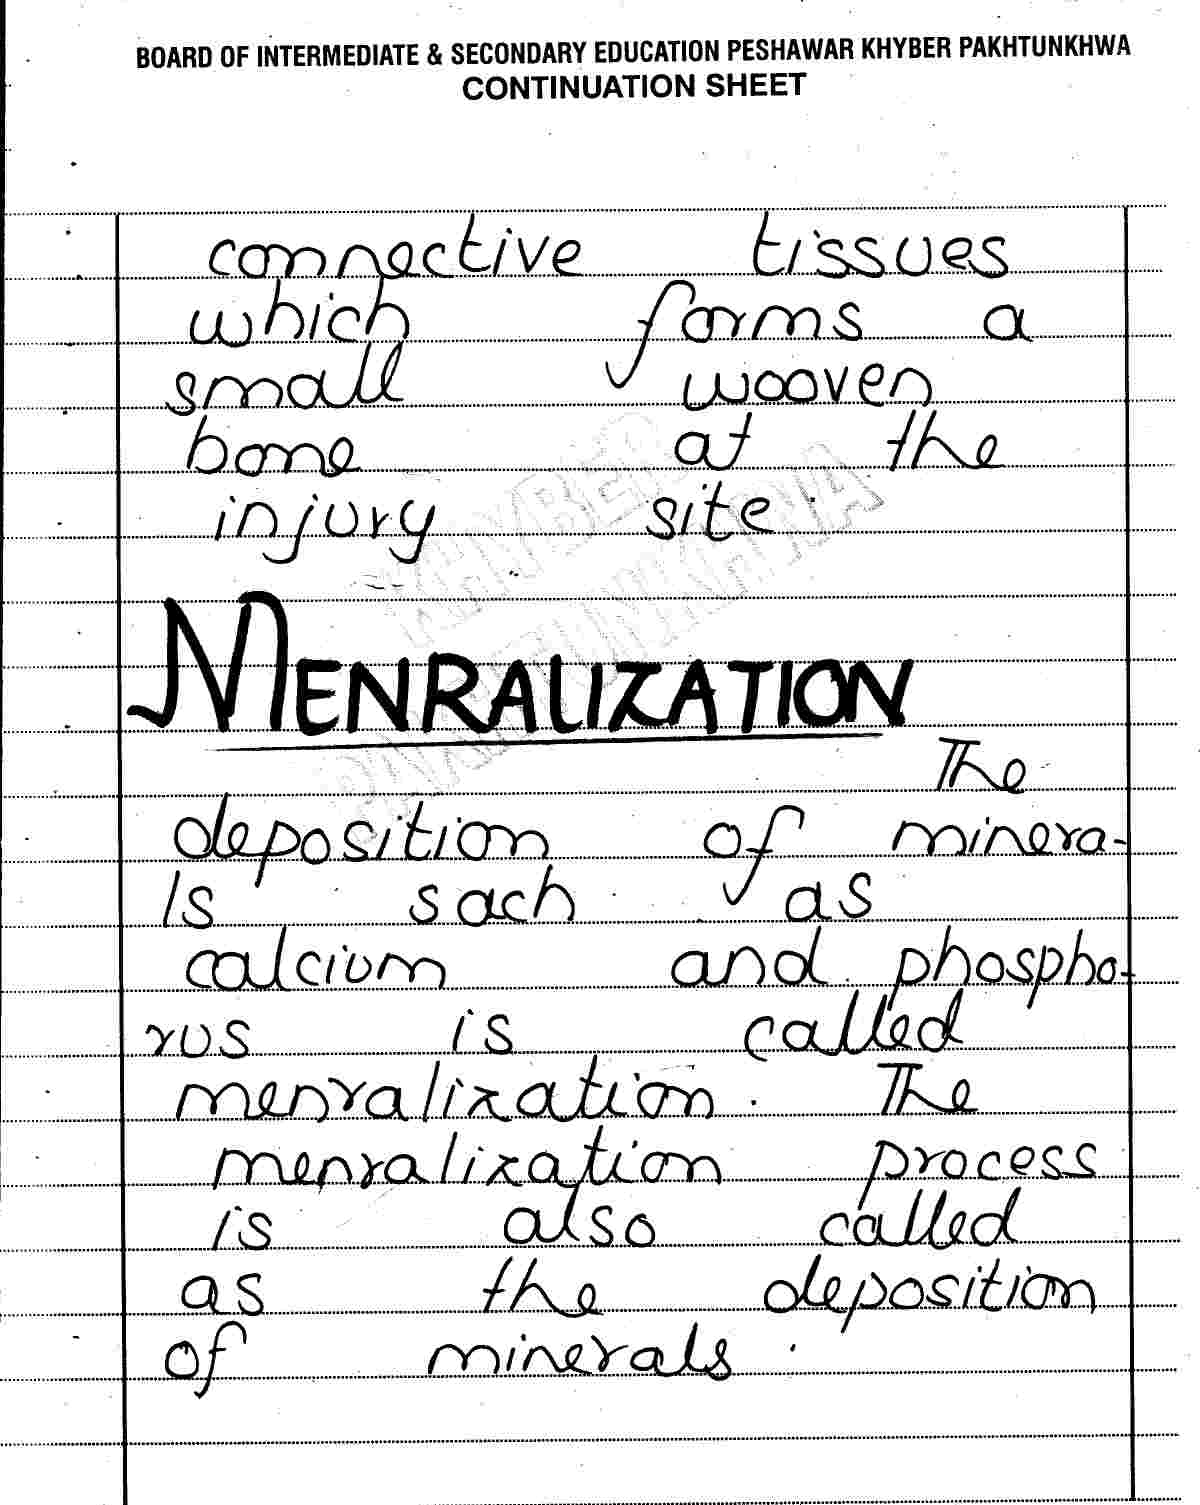 BOARD OF INTERMEDIATE & SECONDARY EDUCATION PESHAWAR KHYBER PAKHTUNKHWA
CONTINUATION SHEET
connective tissues
which forms a
small wooven
bone at the
injury site.
KHYBER
PAKHTUNKHWA
MENRALIZATION
The
deposition of minera-
ls sach as
calcium and phospho-
rus is called
menralization. The
menralization process
is also called
as the deposition
of minerals.